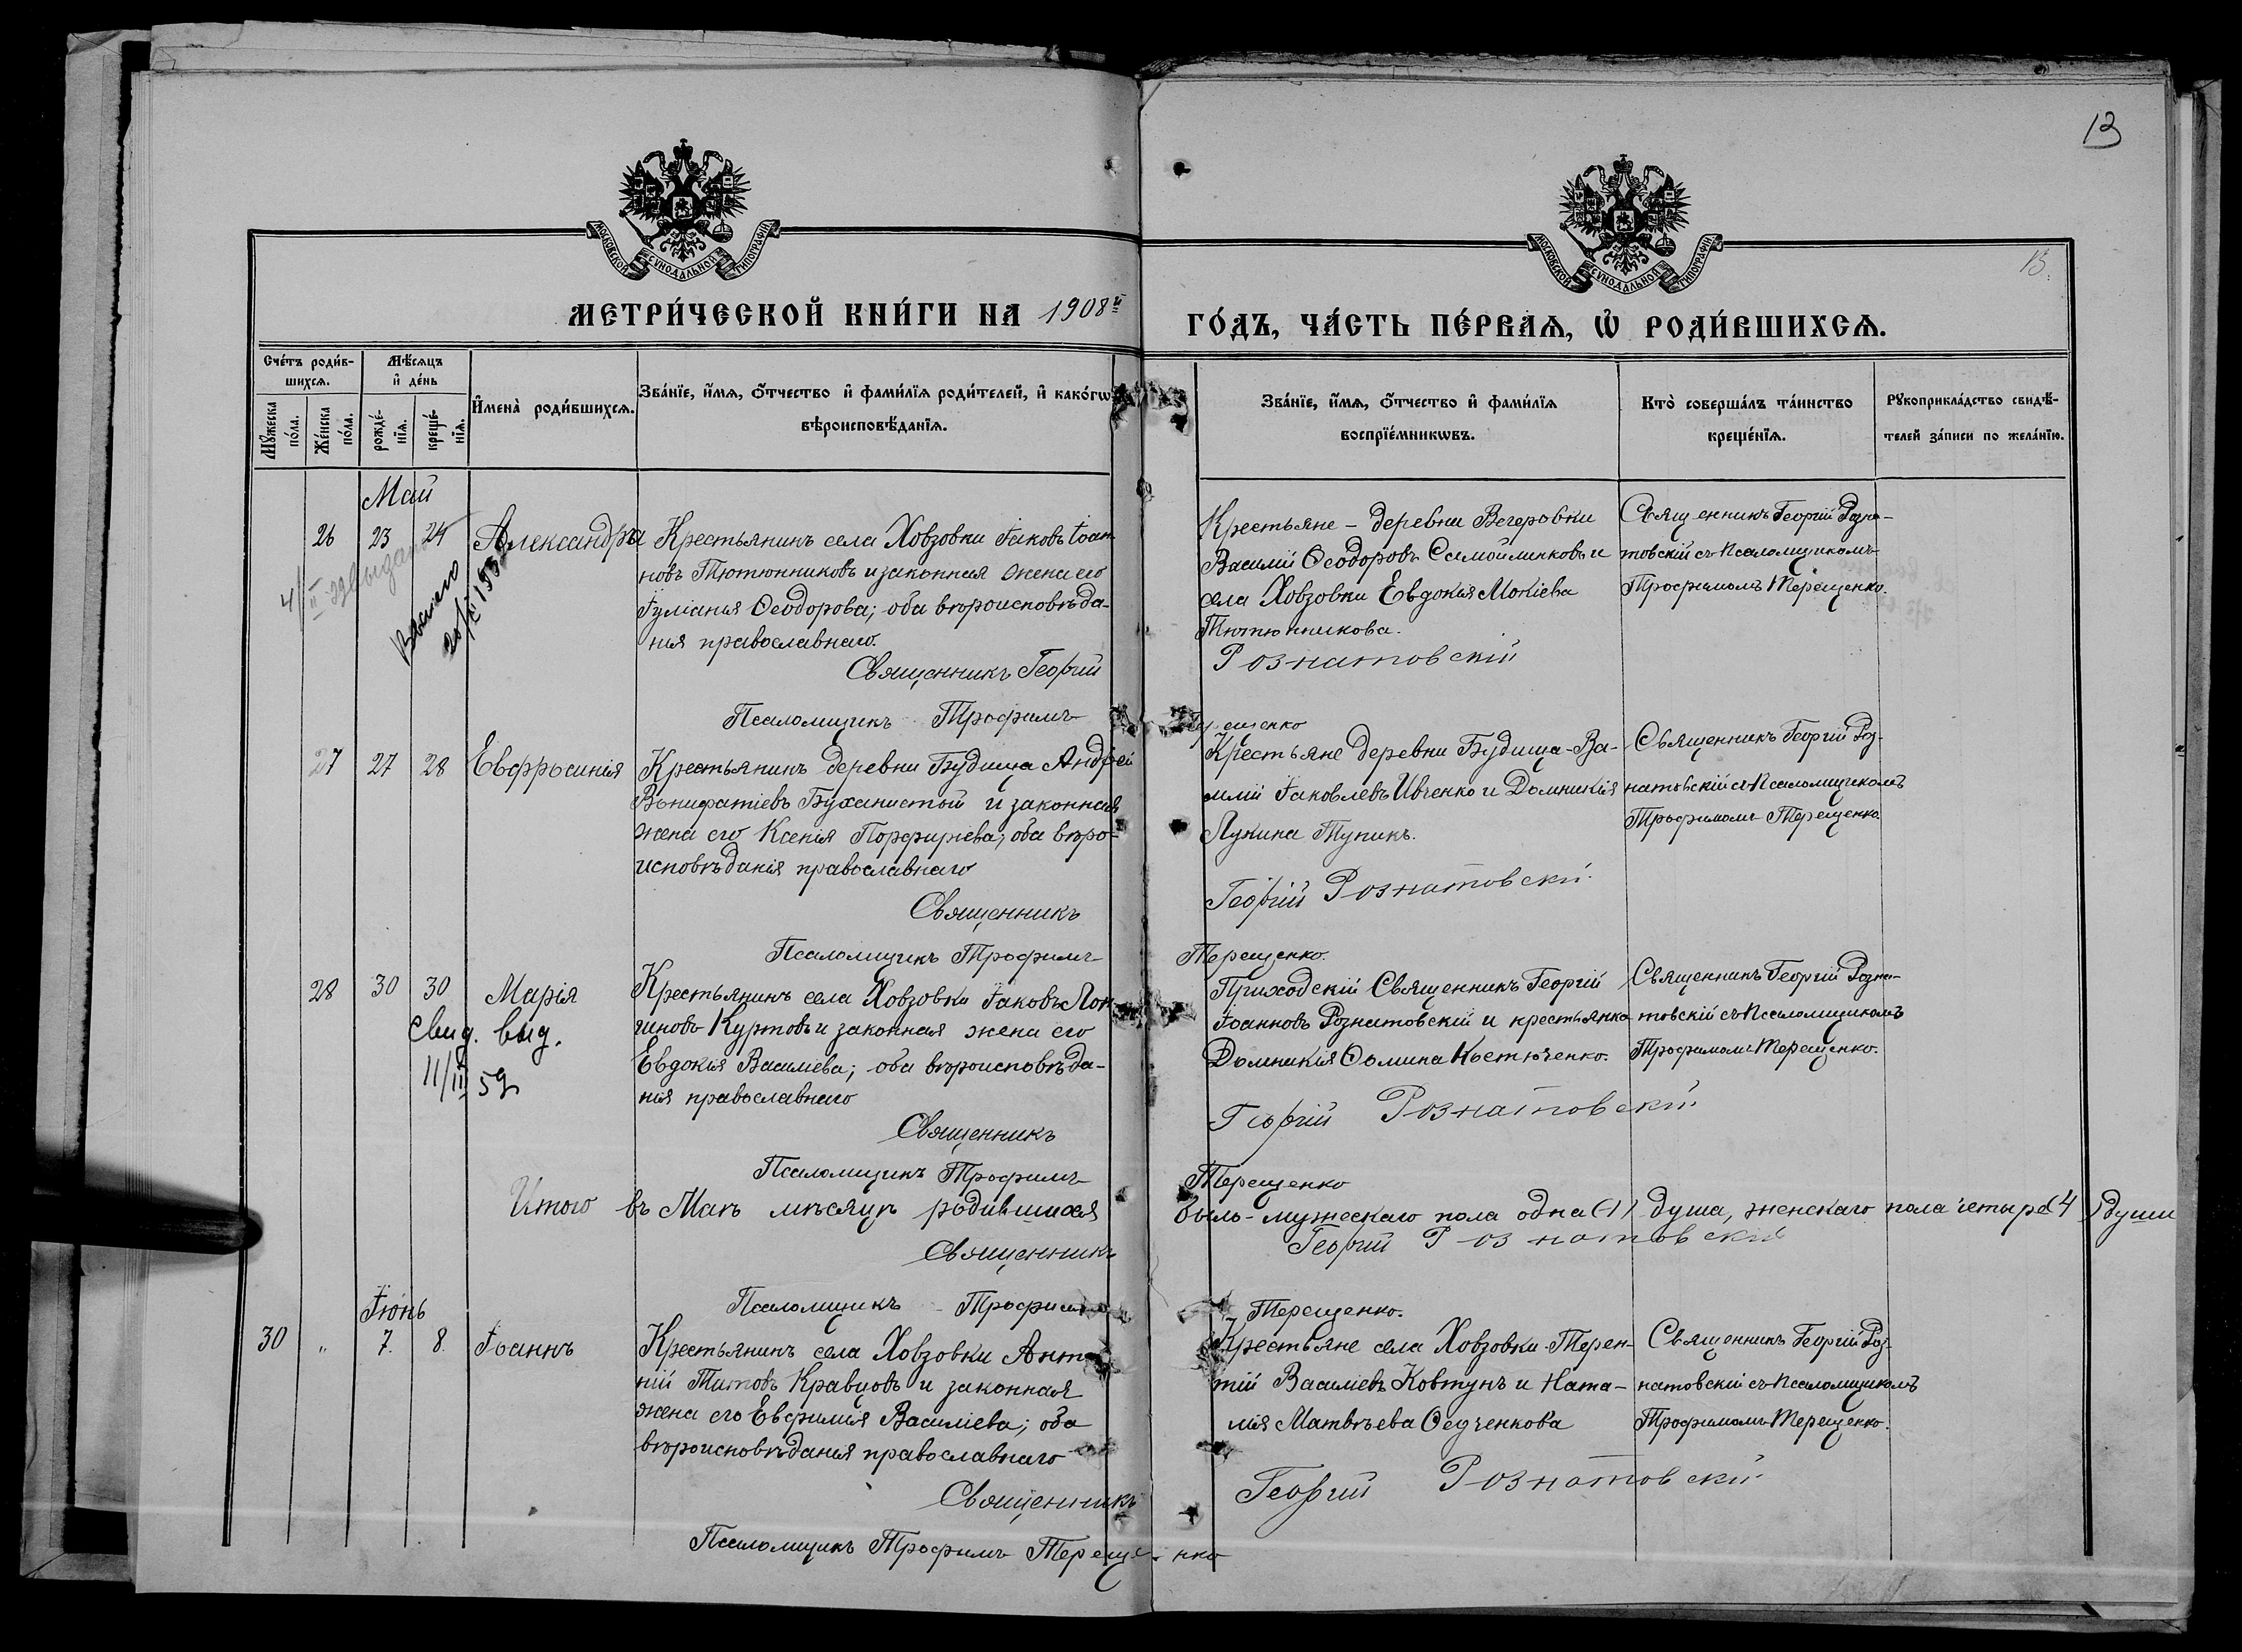 13
13.
МОСКОВСКОЙ СУНОДАЛЬНОЙ ТИПОГРАФІИ
МОСКОВСКОЙ СУНОДАЛЬНОЙ ТИПОГРАФІИ
МЕТРИ́ЧЕСКОЙ КНИ́ГИ НА 1908й
ГО́ДЪ, ЧА́СТЬ ПЕ́РВАѦ, Ѽ РОДИ́ВШИХСѦ.
Сче́тъ роди́в-
шихсѧ.
Мѣ́сѧцъ
и҆ де́нь
Мꙋ́жеска
по́ла.
Же́нска
по́ла.
рожде́-
нїѧ.
креще́-
нїѧ.
И҆мена̀ роди́вшихсѧ.
Зва́нїе, и҆́мѧ, ѻ҆́тчество и҆ фами́лїѧ роди́телей, и҆ како́гѡ
вѣроисповѣ́данїѧ.
Зва́нїе, и҆́мѧ, ѻ҆́тчество и҆ фами́лїѧ
воспрїе́мникѡвъ.
Кто̀ соверша́лъ та́инство
креще́нїѧ.
Рꙋкоприкла́дство свидѣ́-
телей за́писи по жела́нїю.
Май
26 23 24 Александра
Крестьянинъ села Ховзовки Іаковъ Іоан
новъ Тютюнниковъ и законная жена его
Іуліанія Ѳеодорова; оба вѣроисповѣда-
нія православнаго.
Священникъ Георгій
Псаломщикъ Трофимъ
Крестьяне - деревни Вегеровки
Василій Ѳеодоровъ Самойленковъ и
села Ховзовки Евдокія Мокіева
Тютюнникова.
Рознатовскій
Терещенко
Священникъ Георгій Розна-
товскій съ Псаломщикомъ
Трофимомъ Терещенко.
27 27 28 Евфросинія
Крестьянинъ деревни Будища Андрей
Вонифатіевъ Буханистой и законная
жена его Ксенія Порфиріева; оба вѣро-
исповѣданія православнаго
Священникъ
Псаломщикъ Трофимъ
Крестьяне деревни Будища - Ва-
силій Іаковлевъ Ивченко и Домникія
Лукина Тупикъ.
Георгій Рознатовскій
Терещенко.
Священникъ Георгій Роз-
натовскій съ Псаломщикомъ
Трофимомъ Терещенко.
28 30 30 Марія
свид. выд.
11/III 59
Крестьянинъ села Ховзовки Іаковъ Лон
гиновъ Куртовъ и законная жена его
Евдокія Василіева; оба вѣроисповѣда-
нія православнаго
Священникъ
Псаломщикъ Трофимъ
Приходскій Священникъ Георгій
Іоанновъ Рознатовскій и крестьянка
Домникія Ѳомина Костюченко.
Георгій Рознатовскій
Терещенко
Священникъ Георгій Розна-
товскій съ Псаломщикомъ
Трофимомъ Терещенко.
Итого въ Маѣ мѣсяцѣ родившихся было - мужескаго пола одна (1) душа, женскаго пола четыре (4) души
Священникъ Георгій Рознатовскій
Псаломщикъ Трофимъ Терещенко.
Іюнь
30 " 7. 8. Іоаннъ
Крестьянинъ села Ховзовки Анто
ній Титовъ Кравцовъ и законная
жена его Евфимія Василіева; оба
вѣроисповѣданія православнаго
Священникъ
Псаломщикъ Трофимъ Терещенко
Крестьяне села Ховзовки - Терен-
тій Василіевъ Ковтунъ и Ната-
лія Матвѣева Ѳедченкова
Георгій Рознатовскій
Священникъ Георгій Роз-
натовскій съ Псаломщикомъ
Трофимомъ Терещенко.